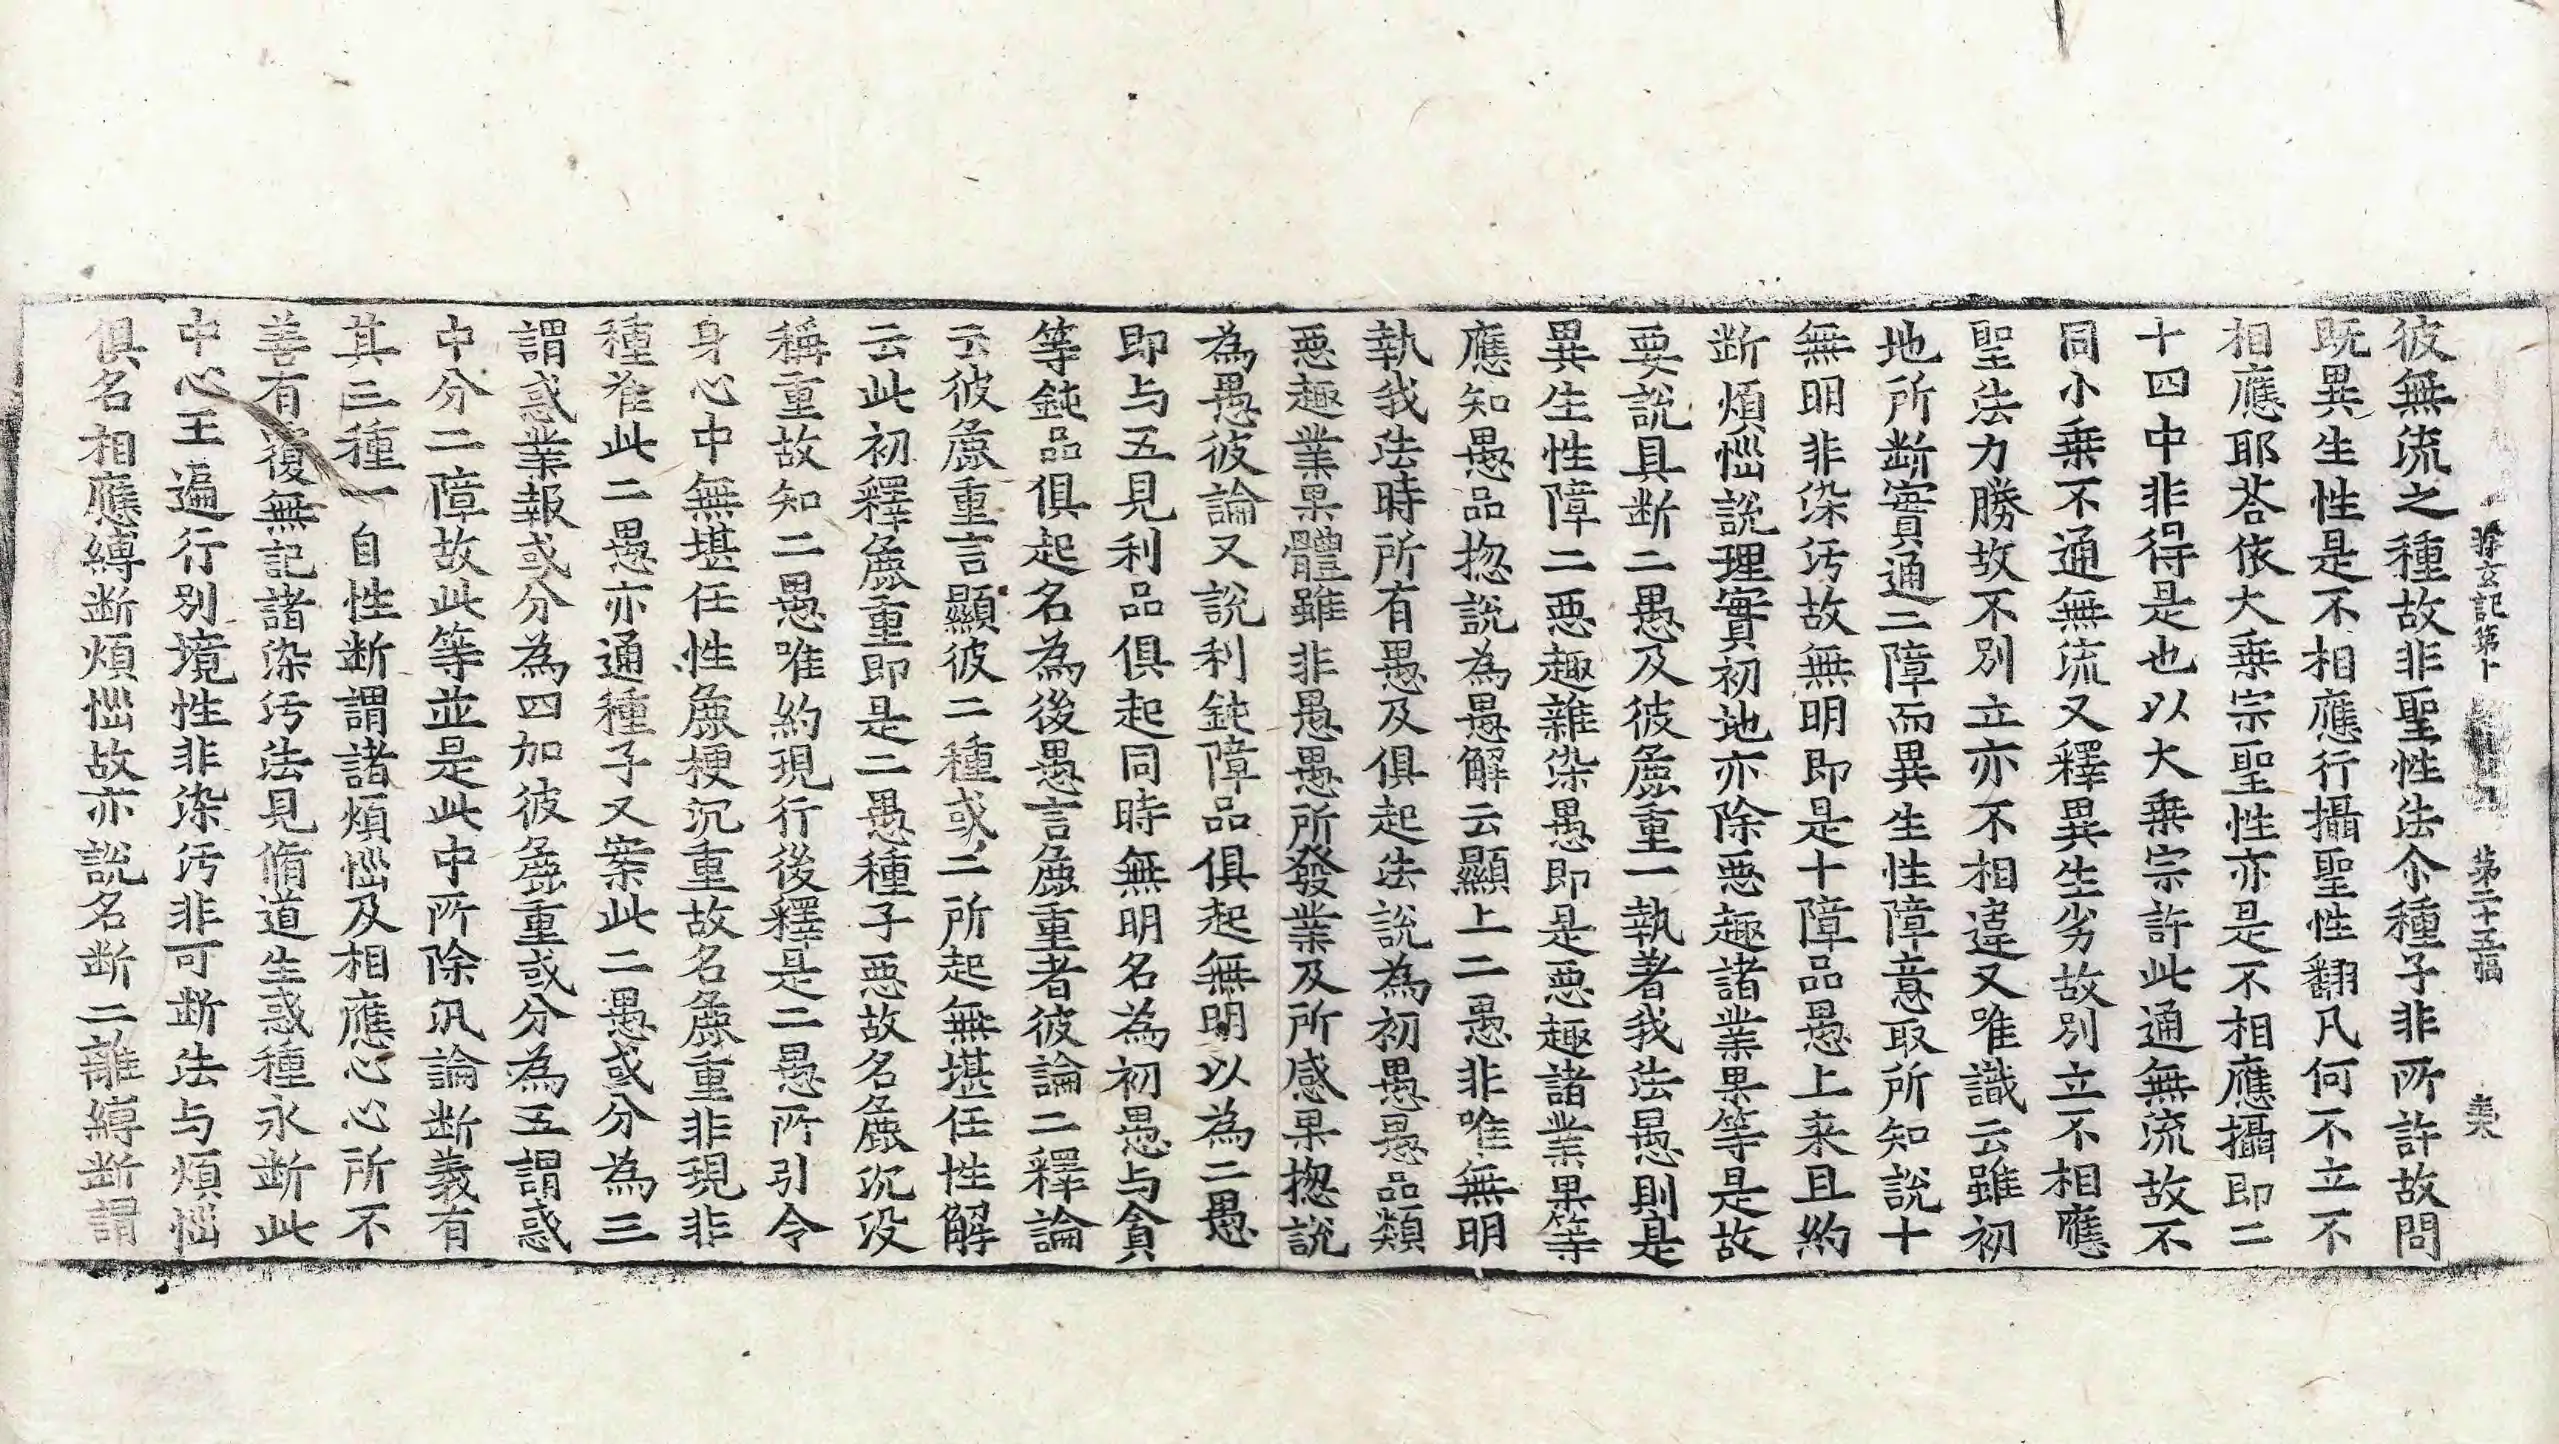 彼無流之種故非聖性法尒種子非所許故問
既異生性是不相應行攝聖性翻凡何不立不
相應耶荅依大乗宗聖性亦是不相應攝即二
十四中非得是也以大乗宗許此通無流故不
同小乗不通無流又釋異生劣故別立不相應
聖法力勝故不別立亦不相違又唯識云雖初
地所斷實通二障而異生性障意取所知說十
無明非染汚故無明即是十障品愚上来且約
斷煩惱說理實初地亦除惡趣諸業果等是故
要說具斷二愚及彼麁重一執著我法愚則是
異生性障二惡趣雜染愚即是惡趣諸業果等
應知愚品揔說為愚解云顯上二愚非唯無明
執我法時所有愚及俱起法說為初愚愚品類
惡趣業果體雖非愚愚所發業及所感果揔說
為愚彼論又說利鈍障品俱起無明以為二愚
即与五見利品俱起同時無明名為初愚与貪
等鈍品俱起名為後愚言麁重者彼論二釋論
云彼麁重言顯彼二種或二所起無堪任性解
云此初釋麁重即是二愚種子惡故名麁沉没
稱重故知二愚唯約現行後釋是二愚所引令
身心中無堪任性麁梗沉重故名麁重非現非
種准此二愚亦通種子又案此二愚或分為三
謂惑業報或分為四加彼麁重或分為五謂惑
中分二障故此等並是此中所除汎論斷義有
其三種一自性斷謂諸煩惱及相應心心所不
善有覆無記諸染汚法見脩道生惑種永斷此
中心王遍行別境性非染汚非可斷法与煩惱
俱名相應縛斷煩惱故亦說名斷二離縛斷謂
玄記第十 第二十五幅